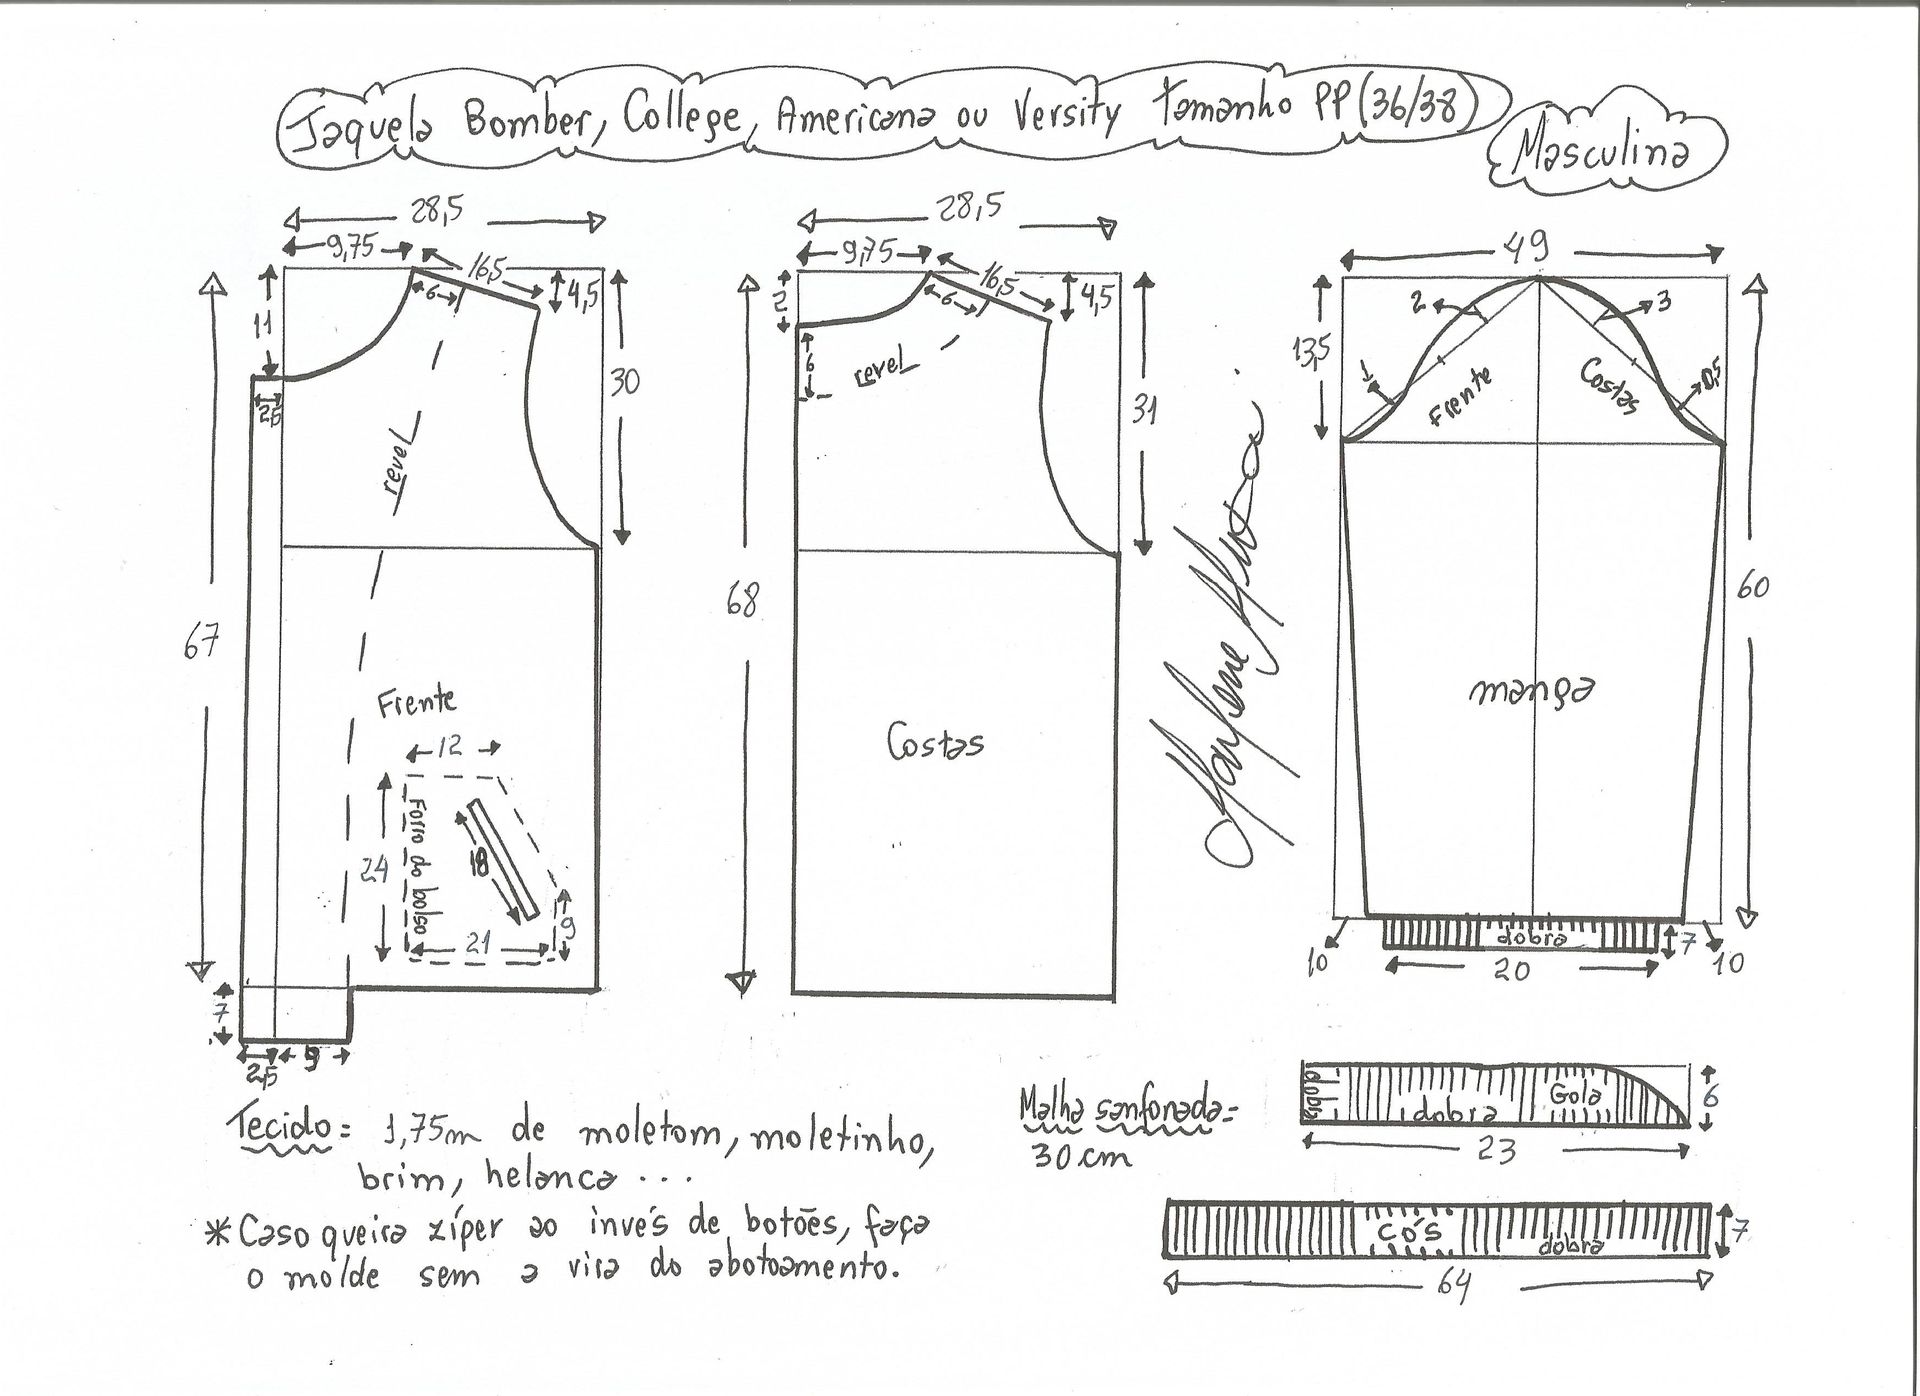 Jaqueta Bomber, College, Americana ou Versity tamanho PP (36/38)
Masculina
28,5
9,75
16,5
6
4,5
11
2,5
30
revel
67
Frente
12
24
Forro do bolso
18
21
9
7
2,5
9
28,5
9,75
16,5
6
4,5
2
6
revel
31
68
Costas
49
2
3
13,5
1
0,5
Frente
Costas
60
manga
dobra
7
10
20
10
Tecido = 1,75m de moletom, moletinho,
brim, helanca ...
* Caso queira zíper ao invés de botões, faça
o molde sem a vira do abotoamento.
Malha sanfonada =
30 cm
dobra
dobra
Gola
6
23
cós
dobra
7
64